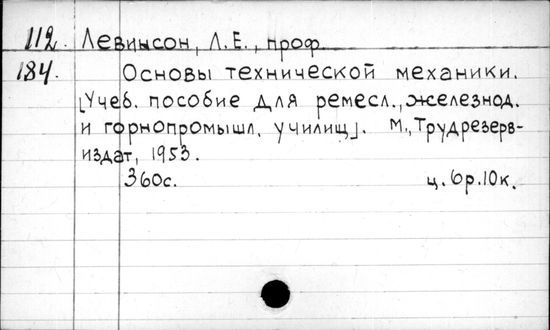 112. Левинсон, Л.Е., проф.
184. Основы технической механики.
[Учеб. пособие для ремесл., железнод.
и горнопромышл. училищ]. М., Трудрезерв-
издат, 1953.
360с. ц. 6р.10к.